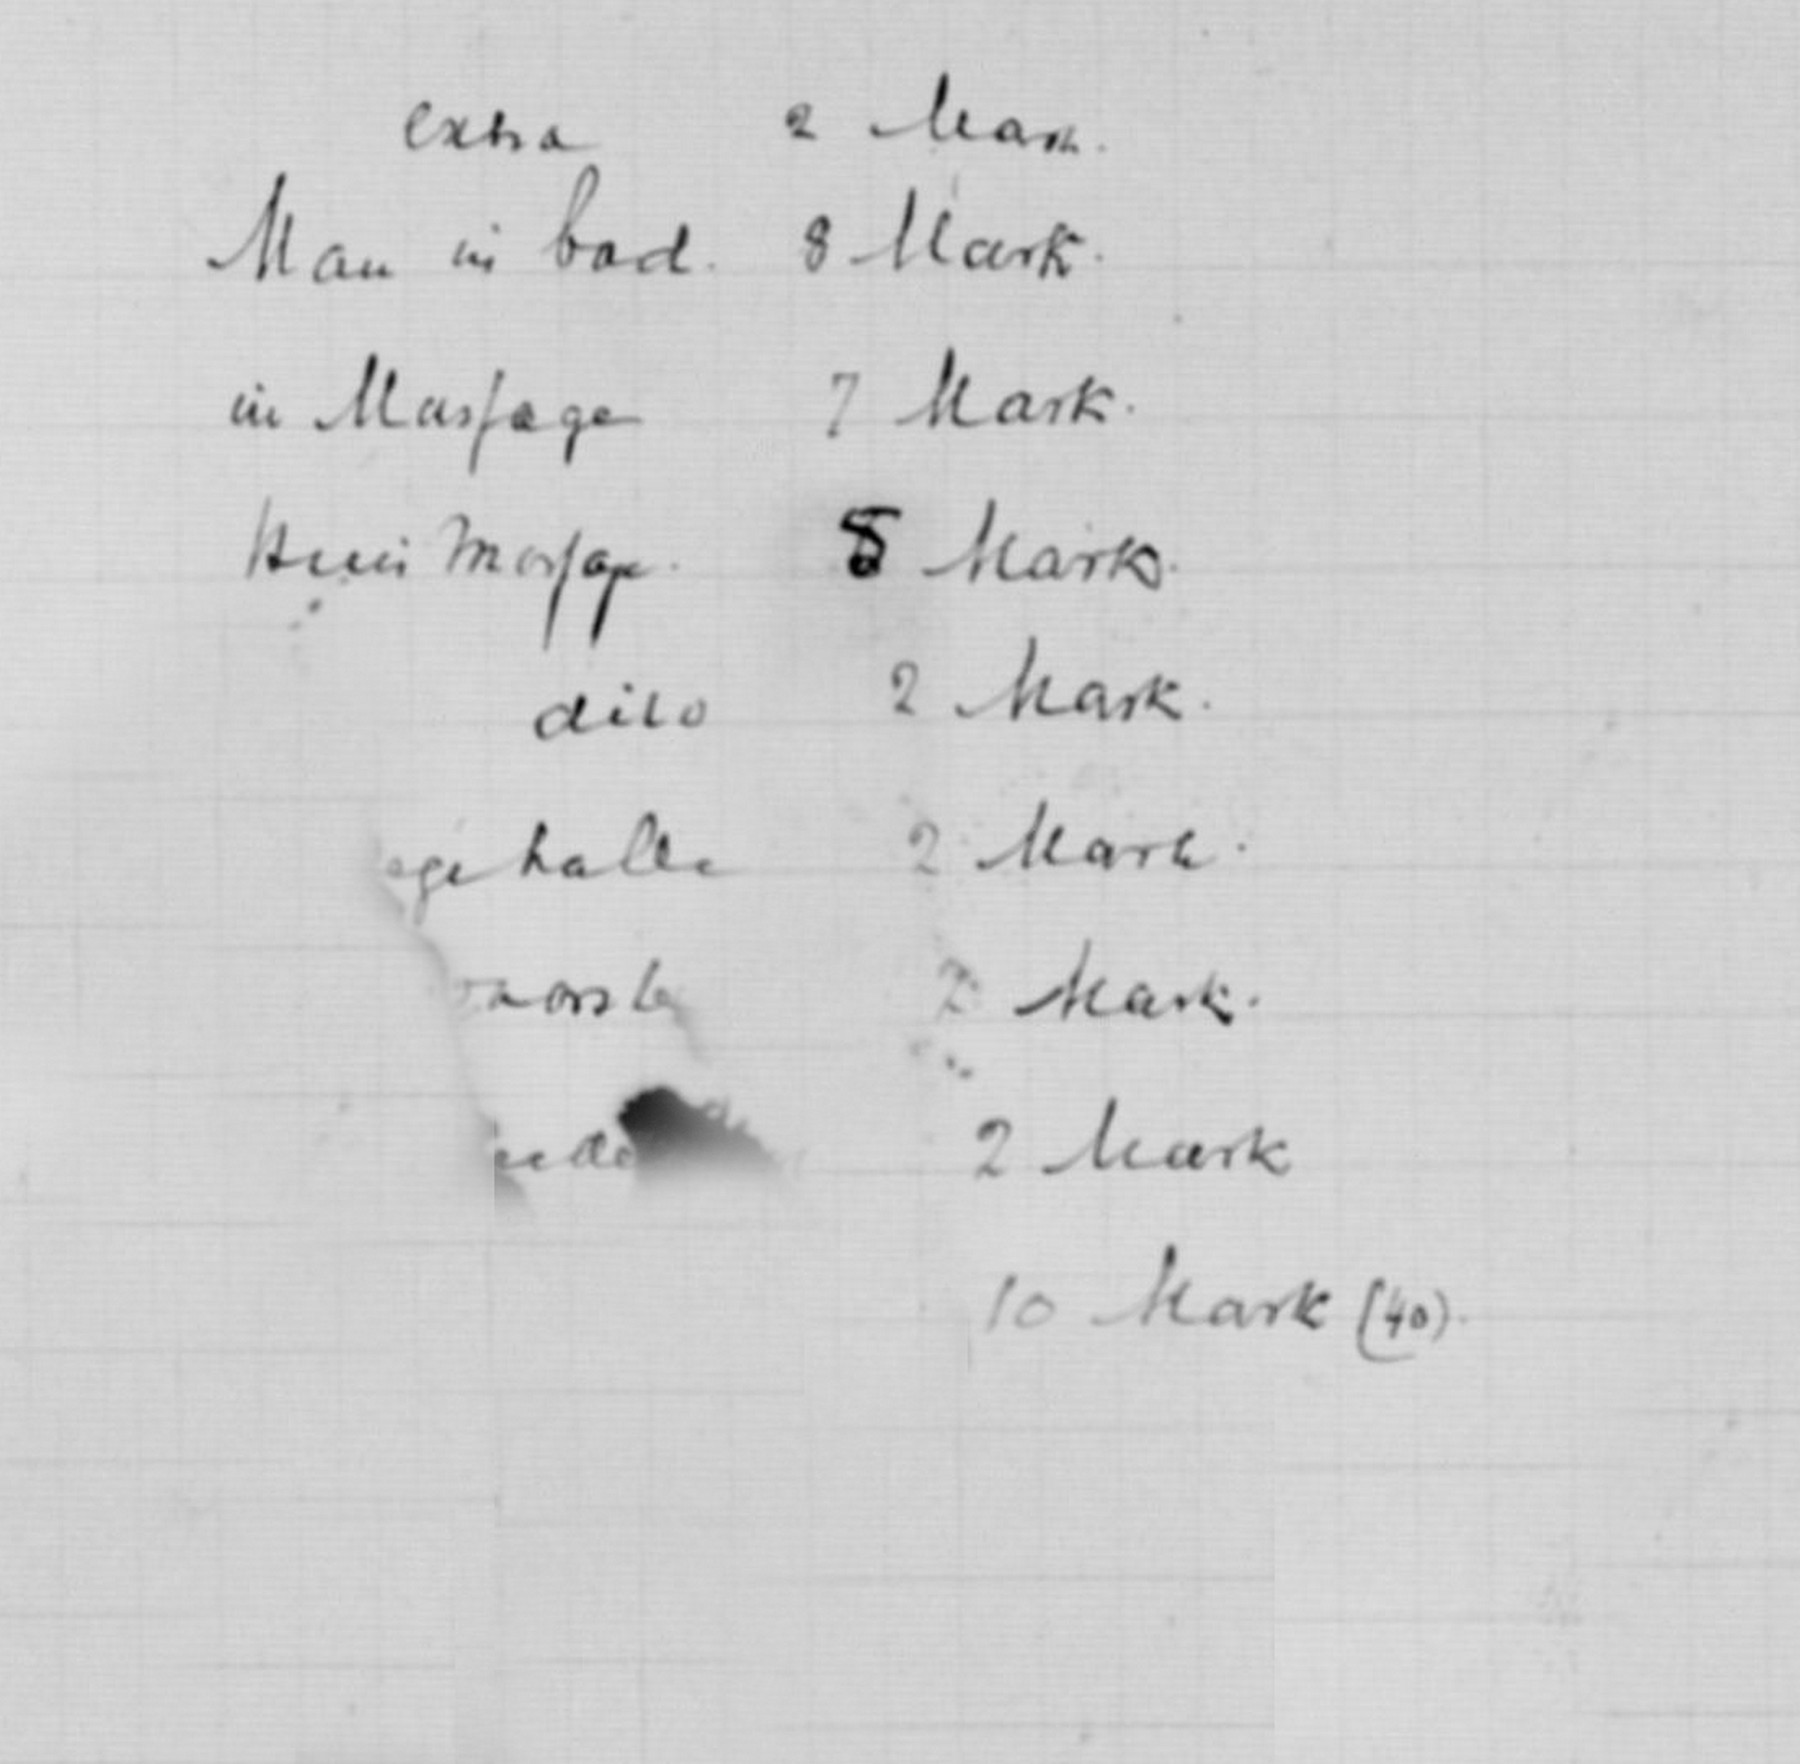 extra 2 Mark.
Man in bad. 8 Mark.
in Massage 7 Mark.
Massage. 5 Mark.
dito 2 Mark.
halle 2 Mark.
2 Mark.
2 Mark
10 Mark (40).